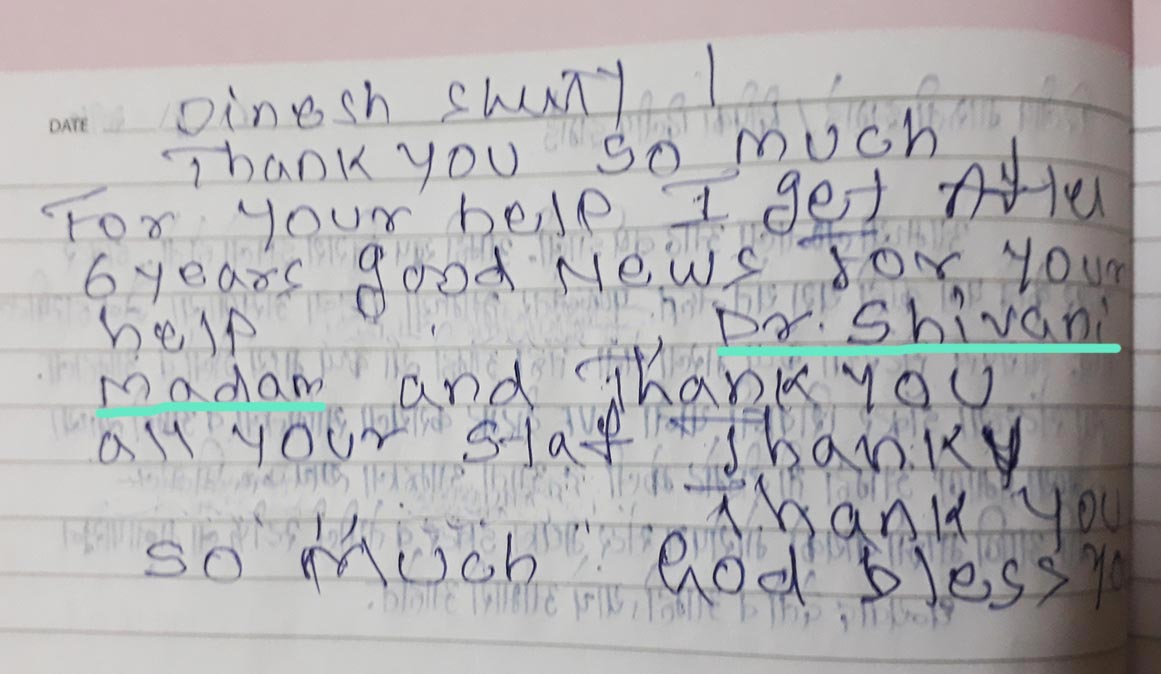 DATE
Dinesh
Thank you so much
For your help I get After
6 years good News for your
help Dr. Shivani
madam and Thank you
all your staf Thanky
Thank you
so much God bless yo